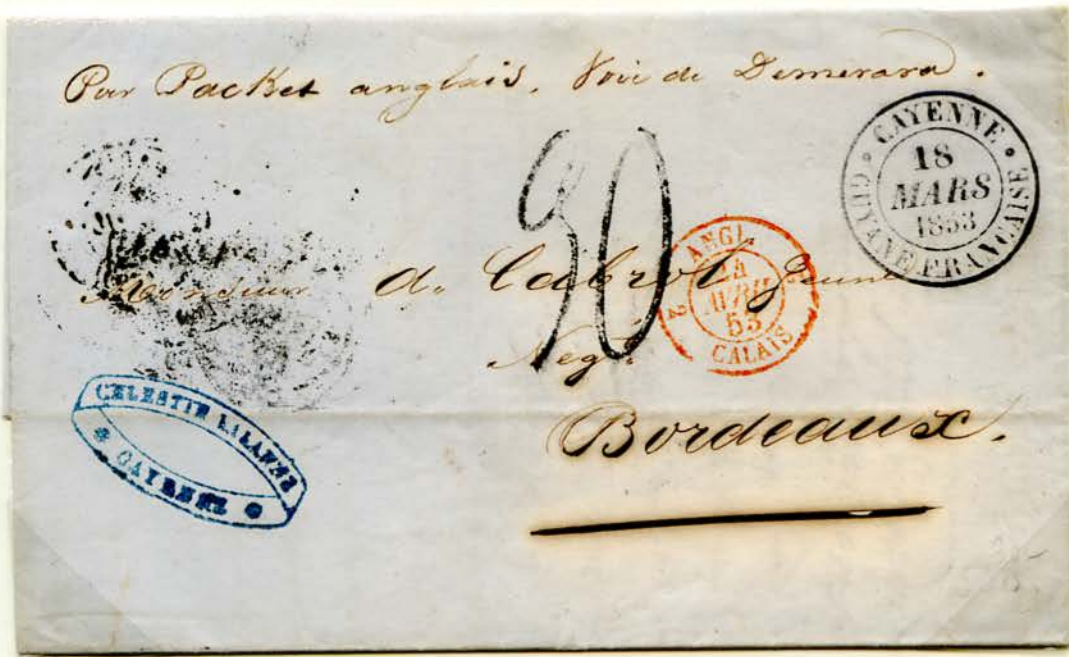 Par Packet anglais, Voie de Demerara.
CAYENNE
18
MARS
1853
GUYANE FRANÇAISE
30
ANGL.
24
AVRIL
53
2
CALAIS
Monsieur de Cabrol Jeune
Negt.
Bordeaux.
CELESTIN LALANNE
CAYENNE